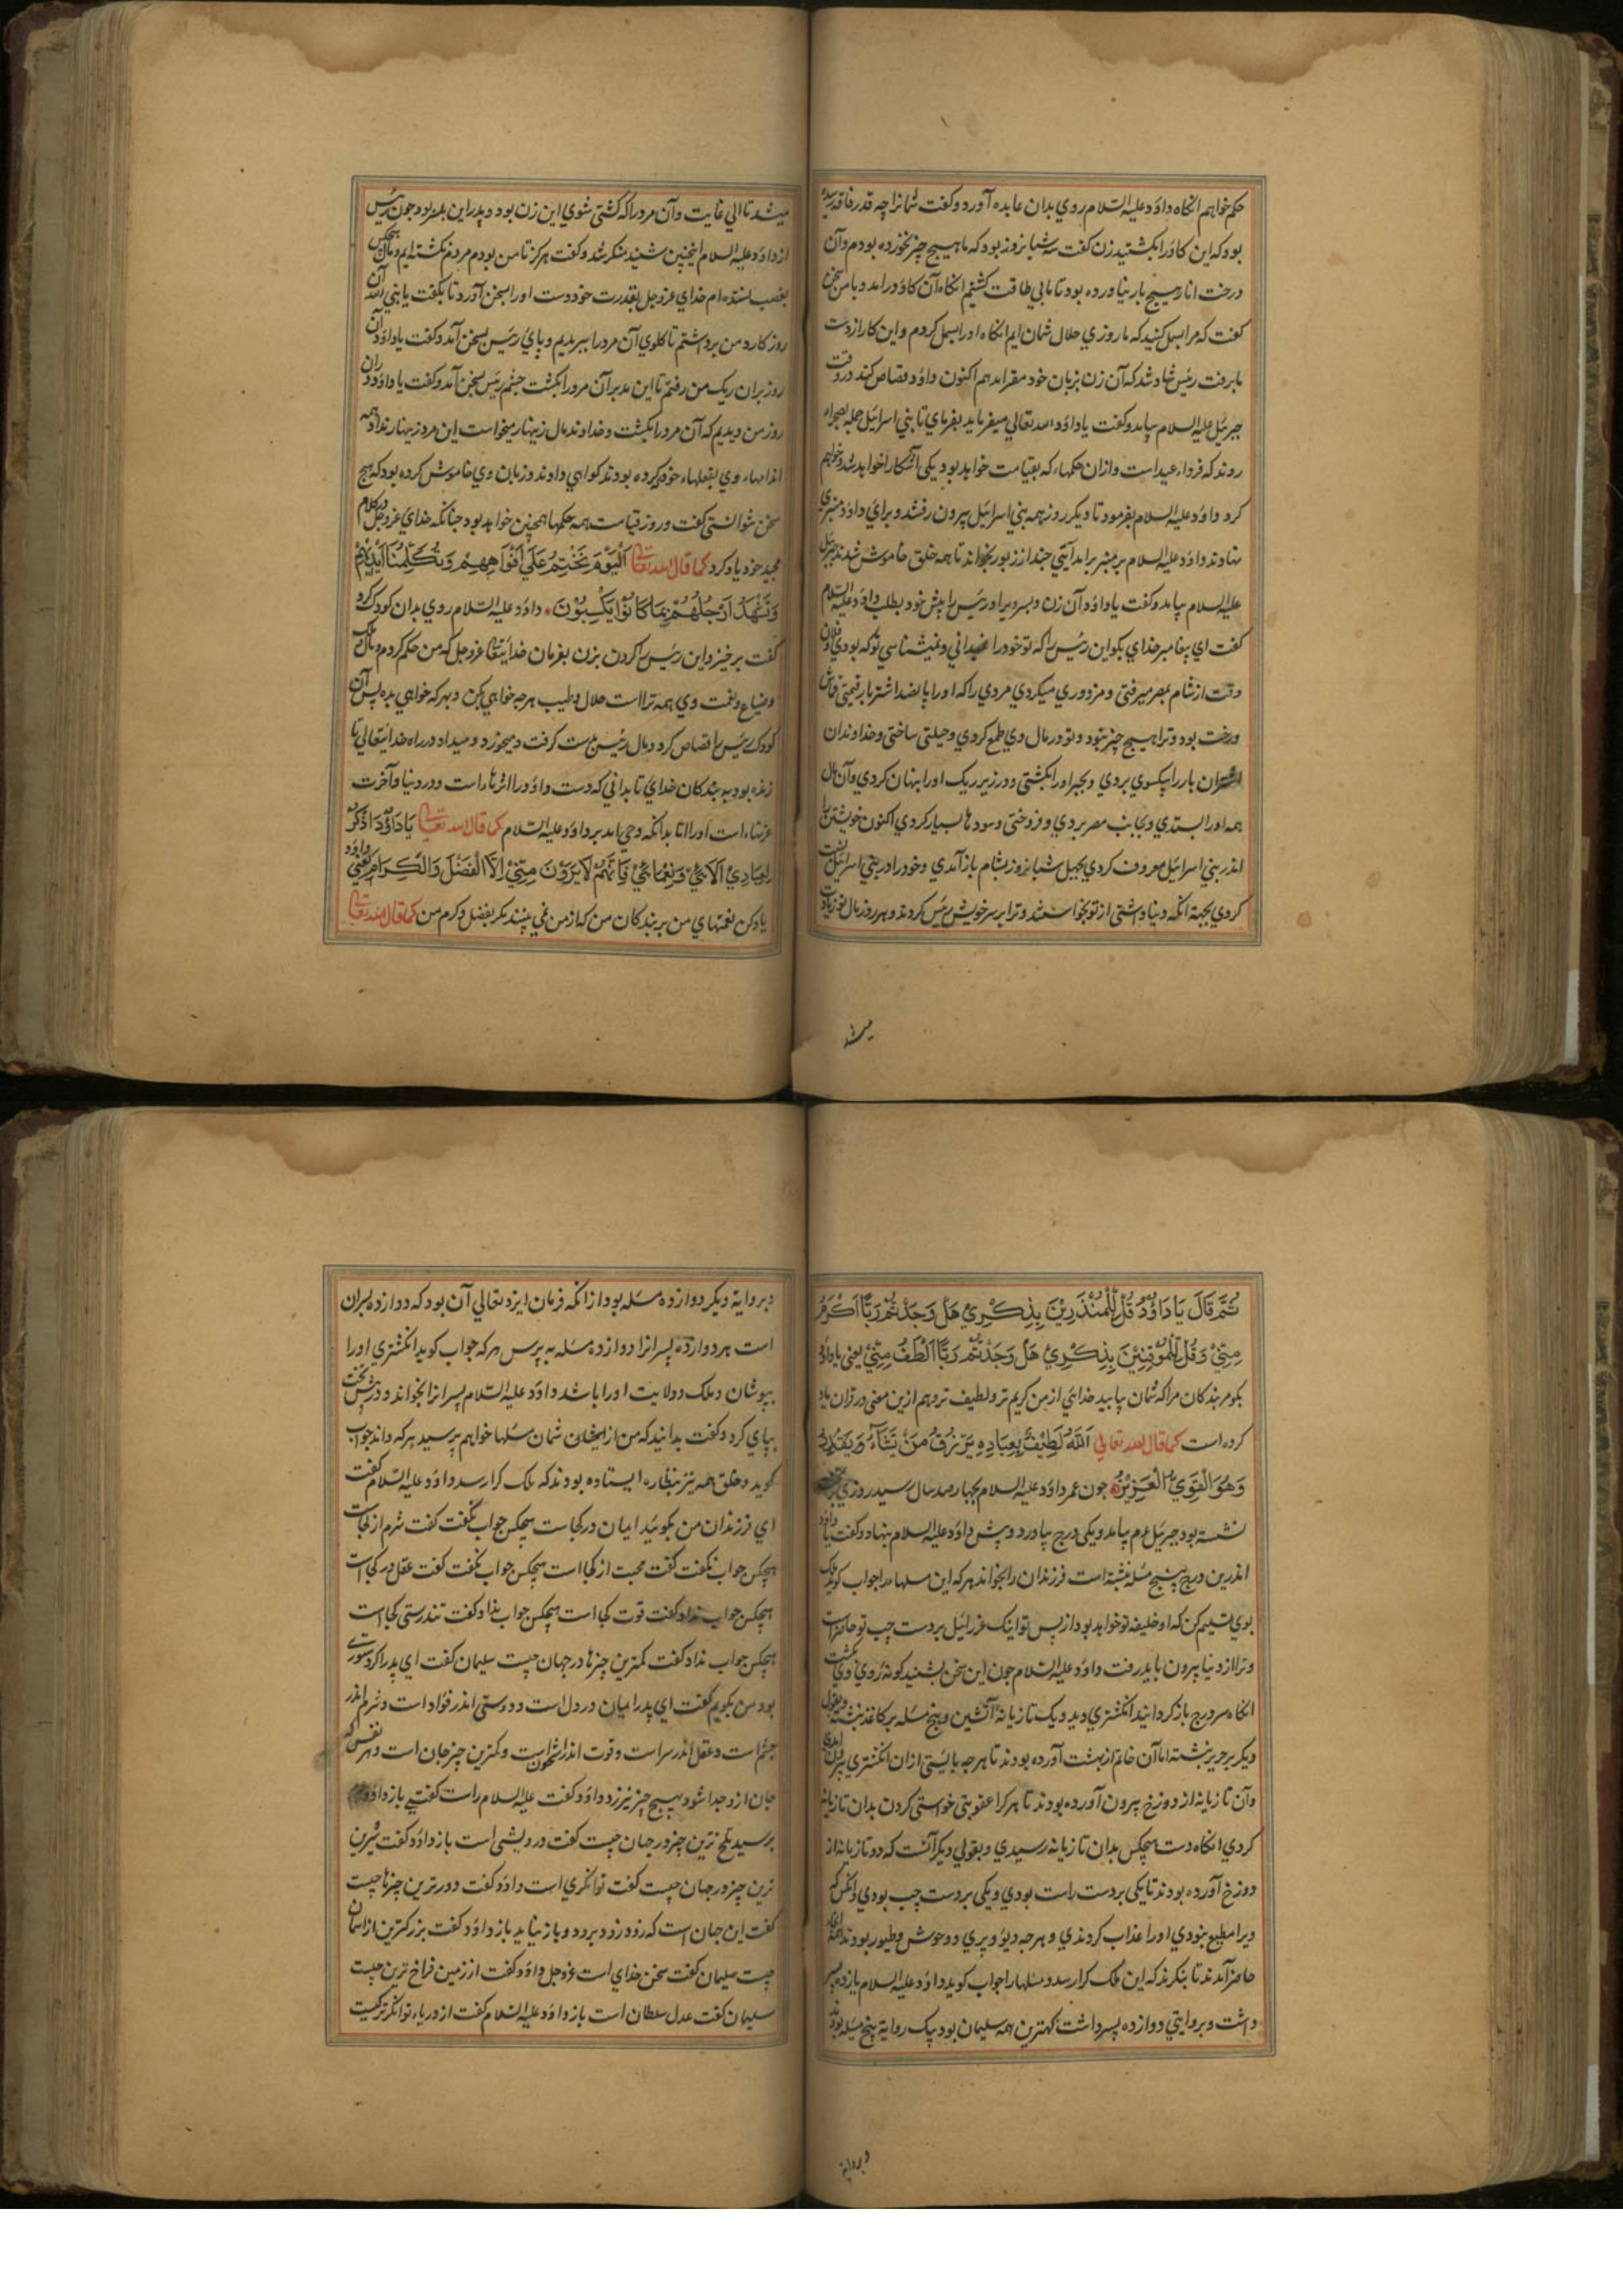 حکم خواهم انکاه داود علیه السلام روي بدان عابده آورد و کفت شمانرا چه قدر فاقه رسیده
بود که این کاو را بکشتید زن کفت سه شبانروز بود که ما هیچ چیز نخورده بودم و آن
درخت انار هیچ بار نیاورده بود تا ما بي طاقت کشتیم انکاه آن کاو درامد و با من سخن
کفت که مرا بسمل کنید که ما روزي حلال شمان ایم انکاه او را بسمل کردم و این کار از دست
ما برفت رئیس شاد شد که آن زن بزبان خود مقر امد هم اکنون داود قصاص کند در وقت
جبرئیل علیه السلام بیامد و کفت یا داود الله تعالي میفرماید بفرماي تا بني اسرائیل جمله بصحراء
روند که فرداء عید است و ازان حکمهاء که بقیامت خواهد بود یکي آشکارا خواهد شد و خواهم
کرد داود علیه السلام بفرمود تا دیکر روز همه بني اسرائیل بیرون رفتند و براي داود منبري
نهادند داود علیه السلام بر منبر برامد آیتي چند از زبور بخواند تا همه خلق خاموش شدند جبرئیل
علیه السلام بیامد و کفت یا داود آن زن و پسر ویرا و رئیس را پیش خود بطلب داود علیه السلام
کفت اي پیغامبر خداي بکو این رئیس را که تو خود را نمیداني و نمیشناسي تو که بودي و فلان
وقت از شام بمصر میرفتي و مزدوري میکردي مردي را که او را پانصد اشتر بار قیمتي قماش
و رخت بود و ترا هیچ چیز نبود و تو در مال وي طمع کردي و حیلتي ساختي و خداوندان
اشتران بار را بیکسوي بردي و بجبر او را بکشتي و در زیر ریک او را پنهان کردي و آن مال
همه او را بستدي و بجانب مصر بردي و فروختي و سودها بسیار کردي اکنون خویشتن را
اندر بني اسرائیل معروف کردي بچهل شبانروز بشام باز آمدي و خود را در بني اسرائیل
کردي بجهة انکه دنیا داشتي از تو بخواستند و ترا بر سر خویش رئیس کردند و هر روز مال تو زیادت
میشد
میشد تا الي غایت و آن مرد را که کشتي شوي این زن بود و پدر این پسر بود چون رئیس
از داود علیه السلام اینچنین شنید منکر شد و کفت هرکز تا من بودم مردم نکشته ایم و مال هیچکس
بغصب نستده ام خداي عز و جل بقدرت خود دست او را بسخن آورد تا بکفت یا نبي الله آن
روز کارد من برداشتم تا کلوي آن مرد را ببریدیم و پاي رئیس بسخن آمد و کفت یا داود آن
روز بران ریک من رفتم تا این مدبر آن مرد را بکشت چشم رئیس بسخن آمد و کفت یا داود دران
روز من دیدیم که آن مرد را بکشت و خداوند مال زینهار میخواست این مرد زینهار نداد همه
اندامهاء وي بفعلهاء خود که کرده بودند کواهي دادند و زبان وي خاموش کرده بود که هیچ
سخن نتوانستي کفت و روز قیامت همه حکمها همچنین خواهد بود چنانکه خداي عز و جل در کلام
مجید خود یاد کرد کما قال الله تعالي اَلْیَوْمَ نَخْتِمُ عَلَي اَفْوَاهِهِمْ وَتُکَلِّمُنَا اَیْدِیْهِمْ
وَتَشْهَدُ اَرْجُلُهُمْ بِمَا کَانُوْا یَکْسِبُوْنَ داود علیه السلام روي بدان کودک کرد
کفت برخیز و این رئیس را کردن بزن بفرمان خدایتعالي عز و جل که من حکم کردم و مال ملک
و ضیاع و نعمت وي همه ترا است حلال و طیب هرچه خواهي بکن و بهر که خواهي بده پس آن
کودک رئیس را قصاص کرد و مال رئیس بدست کرفت و میخورد و میداد در راه خدایتعالي تا
زنده بود به بندکان خداي تا بداني که دست داود را اثرهاء است و در دنیا و آخرت
عزتهاء است او را اتا بدانکه وحي امد بر داود علیه السلام کما قال الله تعالي یَا دَاوٗدَ اذْکُرْ
لِعِبَادِيْ اَلَائِيْ وَنَعْمَائِيْ فَاِنَّهُمْ لَا یَرَوْنَ مِنِّيْ اِلَّا الْفَضْلَ وَالْکِرَامَ یعني یا داود
یاد کن نعمتهاي من بر بندکان من که از من نمي بینند مکر بفضل و کرم من کما قال الله تعالي
ثُمَّ قَالَ یَا دَاوٗدَ قُلْ لِلْمُنْذَرِیْنَ بِذِکْرِيْ هَلْ وَجَدْتُمْ رَبًّا اَکْرَمُ
مِنِّيْ وَقُلْ لِلْمُوْقِنِیْنَ بِذِکْرِيْ هَلْ وَجَدْتُمْ رَبًّا اَلْطَفُ مِنِّيْ یعني یا داود
بکو مر بندکان مرا که شمان یابید خدائي از من کریم تر و لطیف تر و هم ازین معني در قران یاد
کرده است کما قال الله تعالي اَللّٰهُ لَطِیْفٌ بِعِبَادِهٖ یَرْزُقُ مَنْ یَشَآءُ
وَهُوَ الْقَوِيُّ الْعَزِیْزُ چون عمر داود علیه السلام بچهارصد سال رسید روزي
نشسته بود جبرئیل ءم بیامد و یکي درج بیاورد و پیش داود علیه السلام بنهاد و کفت یا داود
اندرین درج پنج مسئله نبشته است فرزندان را بخواند هر که این مسلها را جواب کوید ملک
بوي تسلیم کن که او خلیفه تو خواهد بود از پس تو اینک عزرائیل بر دست چپ تو حاضر است
و ترا از دنیا بیرون باید رفت داود علیه السلام چون این سخن بشنید کونه روي وي بکشت
انکاه سر درج باز کردانید انکشتري دید و یک تازیانه آتشین و پنج مسئله بر کاغذ نبشته و بقول
دیکر بر حریر نبشته اما آن خاتم از بهشت آورده بودند تا هرچه بایستي ازان انکشتري بیرون امدي
و آن تازیانه از دوزخ بیرون آورده بودند تا هر کرا عقوبتي خواستي کردن بدان تازیانه
کردي انکاه دست هیچکس بدان تازیانه نرسیدي و بقولي دیکر آنست که دو تازیانه از
دوزخ آورده بودند تا یکي بر دست راست بودي و یکي بر دست چپ بودي و انکس که
ویرا مطیع نبودي او را عذاب کردندي و هرچه دیو و پري و وحوش و طیور بودند همه
حاضر آمدند تا بنکرند که این ملک کرا رسد و مسلها را جواب کوید داود علیه السلام یازده پسر
داشت و بروایتي دوازده پسر داشت کهترین همه سلیمان بود بیک روایة پنج مسئله بودند
و بروایة
و بروایة دیکر دوازده مسئله بود از انکه فرمان ایزد تعالي آن بود که دوازده پسران
است هر دوازده پسرانرا دوازده مسئله به پرس هر که جواب کوید انکشتري او را
بپوشان و ملک و ولایت او را باشد داود علیه السلام پسرانرا بخواند و در پیش تخت
بپاي کرد و کفت بدانید که من از ایشان شمان مسلها خواهم پرسید هر که داند جواب
کوید و خلق همه نیز بنظاره ایستاده بودند که ملک کرا رسد داود علیه السلام کفت
اي فرزندان من بکوئید ایمان در کجاست هیچکس جواب نکفت کفت شرم از کجاست
هیچکس جواب نکفت کفت محبت از کجا است هیچکس جواب نکفت کفت عقل در کجا است
هیچکس جواب نداد کفت قوت کجا است هیچکس جواب نداد و کفت تندرستي کجا است
هیچکس جواب نداد کفت کمترین چیزها در جهان چیست سلیمان کفت اي پدر اکر دستوري
بود من بکویم کفت اي پدر ایمان در دل است و دوستي اندر فؤاد است و شرم اندر
چشم است و عقل اندر سر است و قوت اندر استخوان است و کمترین چیز جان است و هر نفس که
جان ازو جدا شود بهیچ چیز نیرزد داود کفت علیه السلام راست کفتي باز داود
پرسید تلخ ترین چیز در جهان چیست کفت درویشي است باز داود کفت شیرین
ترین چیز در جهان چیست کفت توانکري است داود کفت دورترین چیزها چیست
کفت این جهان است که زود زود برود و باز نیاید باز داود کفت بزرکترین از آسمان
چیست سلیمان کفت سخن خداي است عز و جل داود کفت از زمین فراخ ترین چیست
سلیمان کفت عدل سلطان است باز داود علیه السلام کفت از دریاء توانکرتر کیست